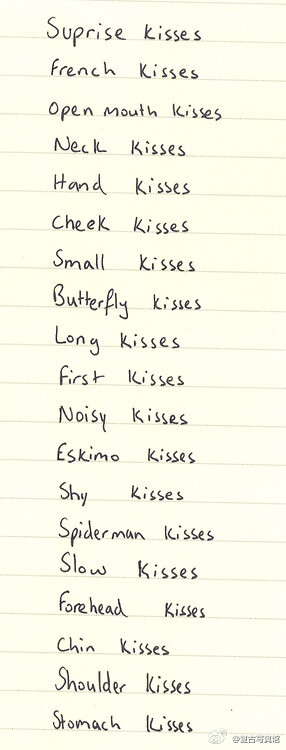 Suprise Kisses
French Kisses
Open mouth Kisses
Neck Kisses
Hand Kisses
Cheek Kisses
Small Kisses
Butterfly Kisses
Long Kisses
First Kisses
Noisy Kisses
Eskimo Kisses
Shy Kisses
Spiderman Kisses
Slow Kisses
Forehead Kisses
Chin Kisses
Shoulder Kisses
Stomach Kisses
@复古写真馆